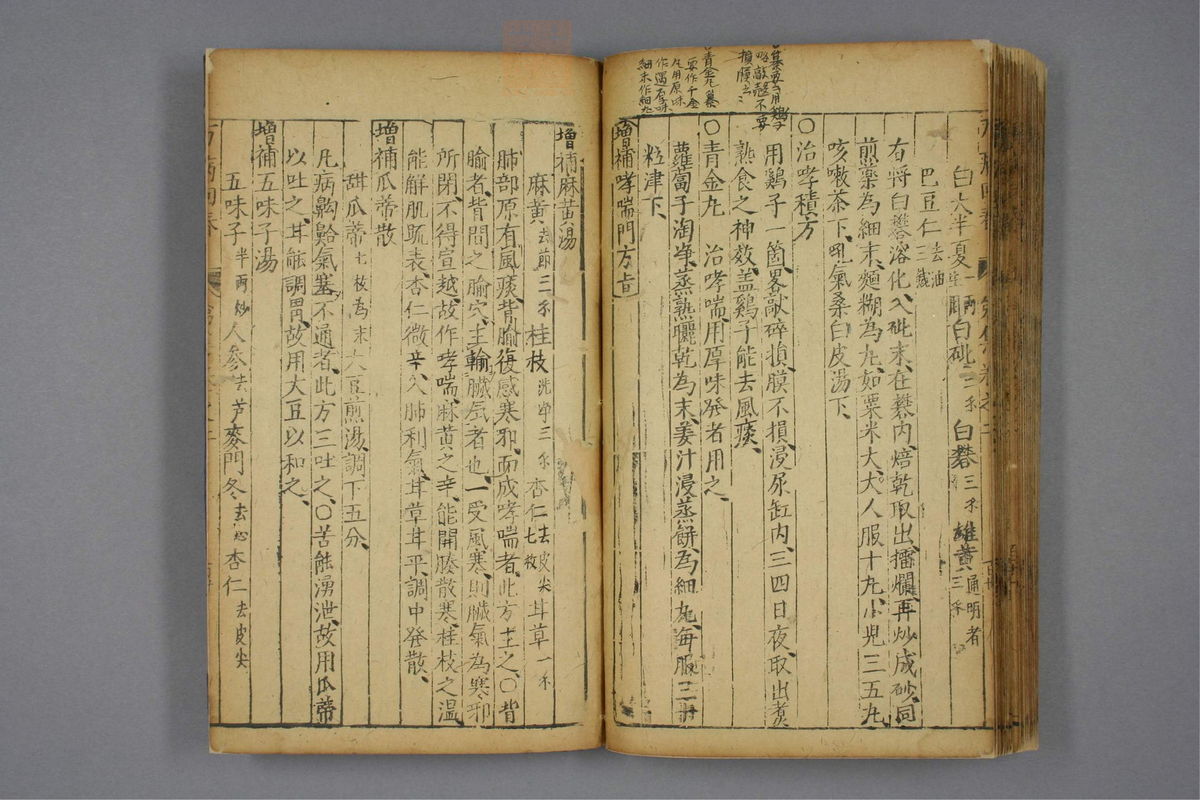 白大半夏生一兩 白砒三禾 白礬三禾 雄黃通明者三禾
巴豆仁去油三錢
右將白礬溶化入砒末在礬內焙乾取出擂爛再炒成砂同
煎藥為細末麵糊為丸如粟米大大人服十丸小兒三五丸
咳嗽茶下吼氣桑白皮湯下
○治哮積方
用鷄子一箇畧敲碎損膜不損浸尿缸內三四日夜取出煮
熟食之神效盖鷄子能去風痰
○青金丸 治哮喘用厚味發者用之
蘿蔔子淘净蒸熟曬乾為末姜汁浸蒸餅為細丸每服三十
粒津下
增補哮喘門方
畧敲殼不要
損膜
青金丸纂
要作千金
丸用原味
作遇厚味
細末作細丸
增補麻黃湯
麻黃去節三禾 桂枝洗净三禾 杏仁去皮尖七枚 甘草一禾
肺部原有風痰背腧復感寒邪而成哮喘者此方主之○背
腧者背間之腧穴主輸臟气者也一受風寒則臟氣為寒邪
所閉不得宣越故作哮喘麻黃之辛能開腠散寒桂枝之溫
能解肌䟽表杏仁微辛入肺利氣甘草甘平調中發散
增補瓜蒂散
甜瓜蒂七枝為末 大豆煎湯調下五分
凡病齁鮯氣塞不通者此方三吐之○苦能湧泄故用瓜蒂
以吐之甘能調胃故用大豆以和之
增補五味子湯
五味子半兩炒 人參去芦 麥門冬去心 杏仁去皮尖